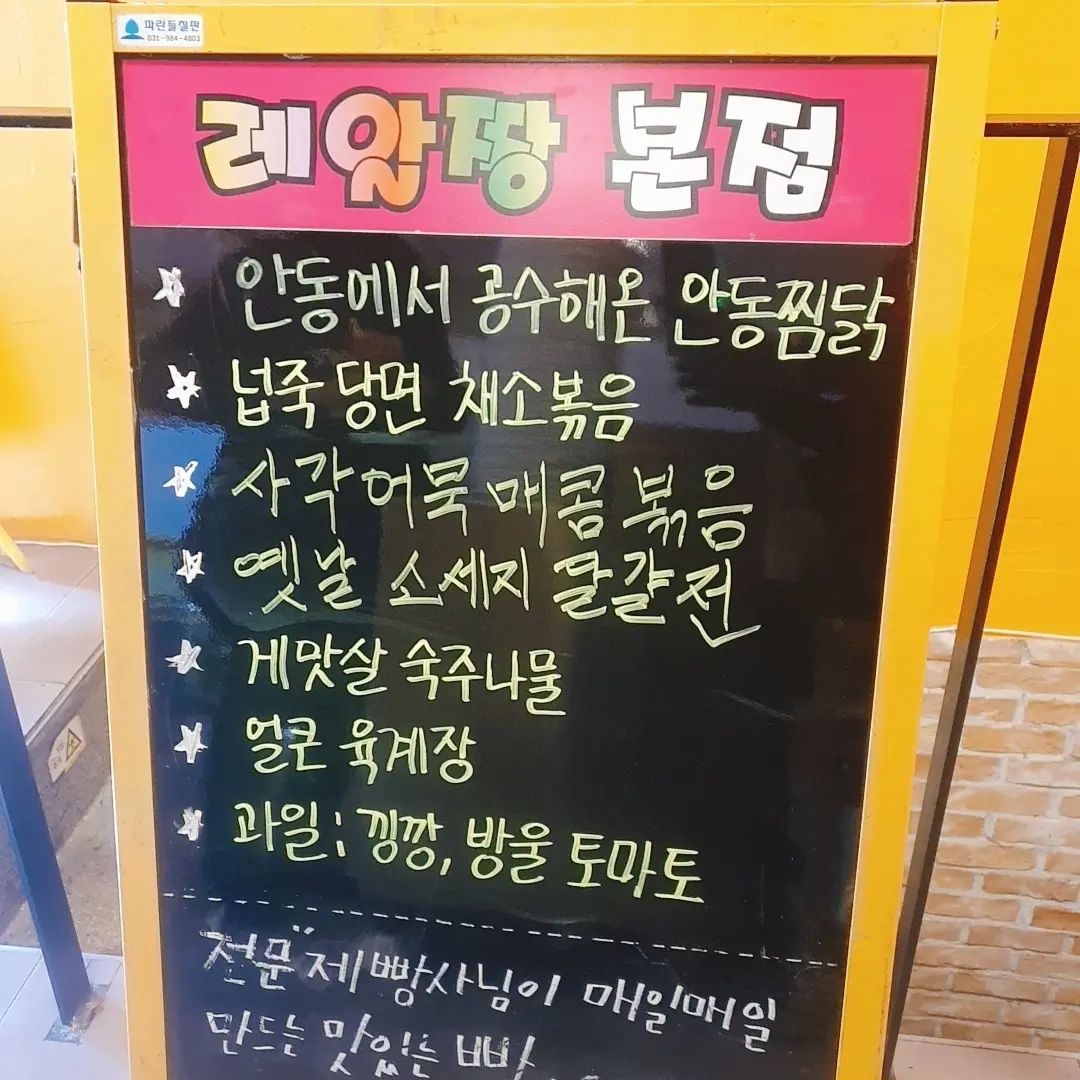 파란들칠판
031-984-4803
레알짱 본점
안동에서 공수해온 안동찜닭
넙죽 당면 채소볶음
사각어묵 매콤 볶음
옛날 소세지 달걀전
게맛살 숙주나물
얼큰 육계장
과일; 낑깡, 방울 토마토
전문" 제빵사님이 매일매일
만드는 맛있는 빵